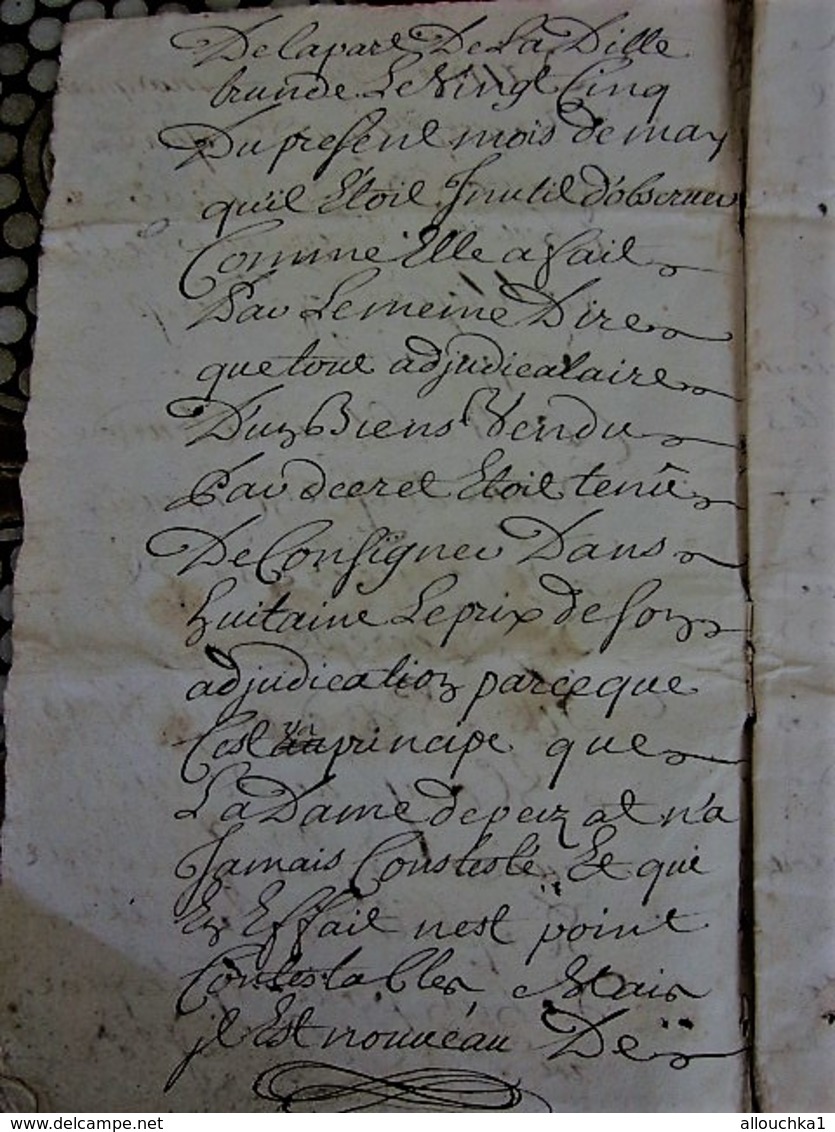 De la part De La Dille
brunde Le Vingt Cinq
Du present mois de may
qu'il Etoit Inutil d'observer
Comme Elle a fait
Par Le meme Dire
que tout adjudicataire
D'un Biens Vendu
Par decret Etoit tenû
De Consigner Dans
huitaine Le prix de son
adjudication parceque
C'est un principe que
La Dame depeizat n'a
Jamais Constesté Et qui
En Effait nest point
Contestables, Mais
jl Est nouveau De
delcampe.net
allouchka1